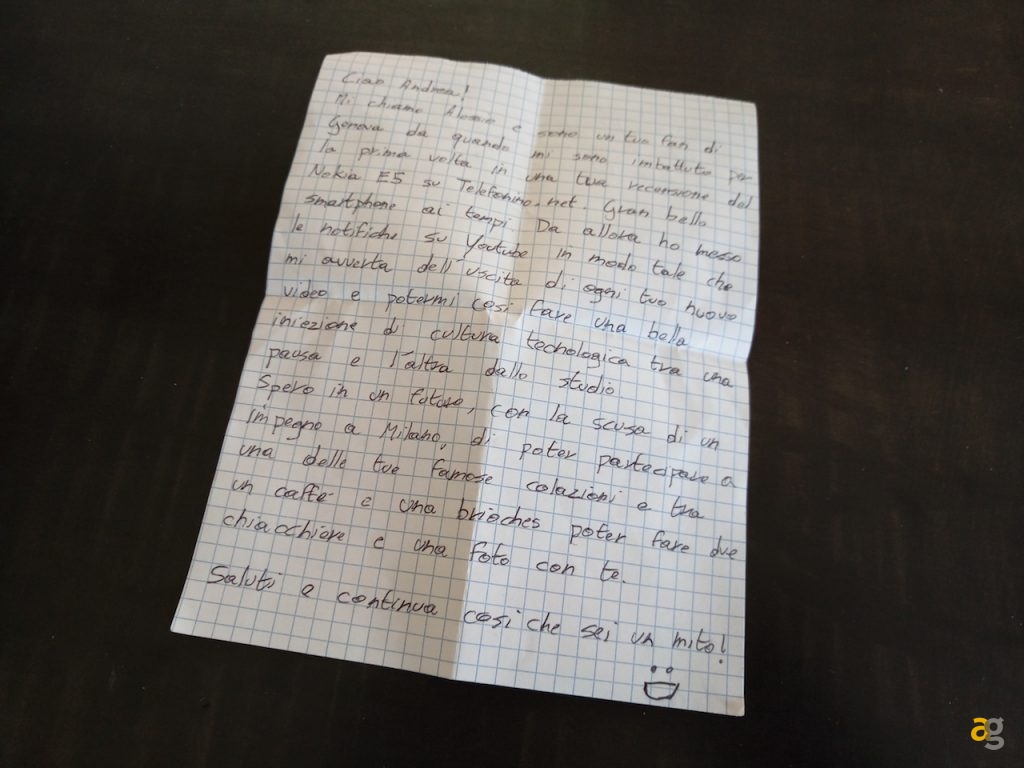 Ciao Andrea!
Mi chiamo Alessio e sono un tuo fan di
Genova da quando mi sono imbattuto per
la prima volta in una tua recensione del
Nokia E5 su Telefonino.net. Gran bello
smartphone ai tempi. Da allora ho messo
le notifiche su Youtube in modo tale che
mi avverta dell'uscita di ogni tuo nuovo
video e potermi così fare una bella
iniezione di cultura tecnologica tra una
pausa e l'altra dallo studio
Spero in un futuro, con la scusa di un
impegno a Milano, di poter partecipare a
una delle tue famose colazioni e tra
un caffè e una brioches poter fare due
chiacchiere e una foto con te.
Saluti e continua così che sei un mito!
ag